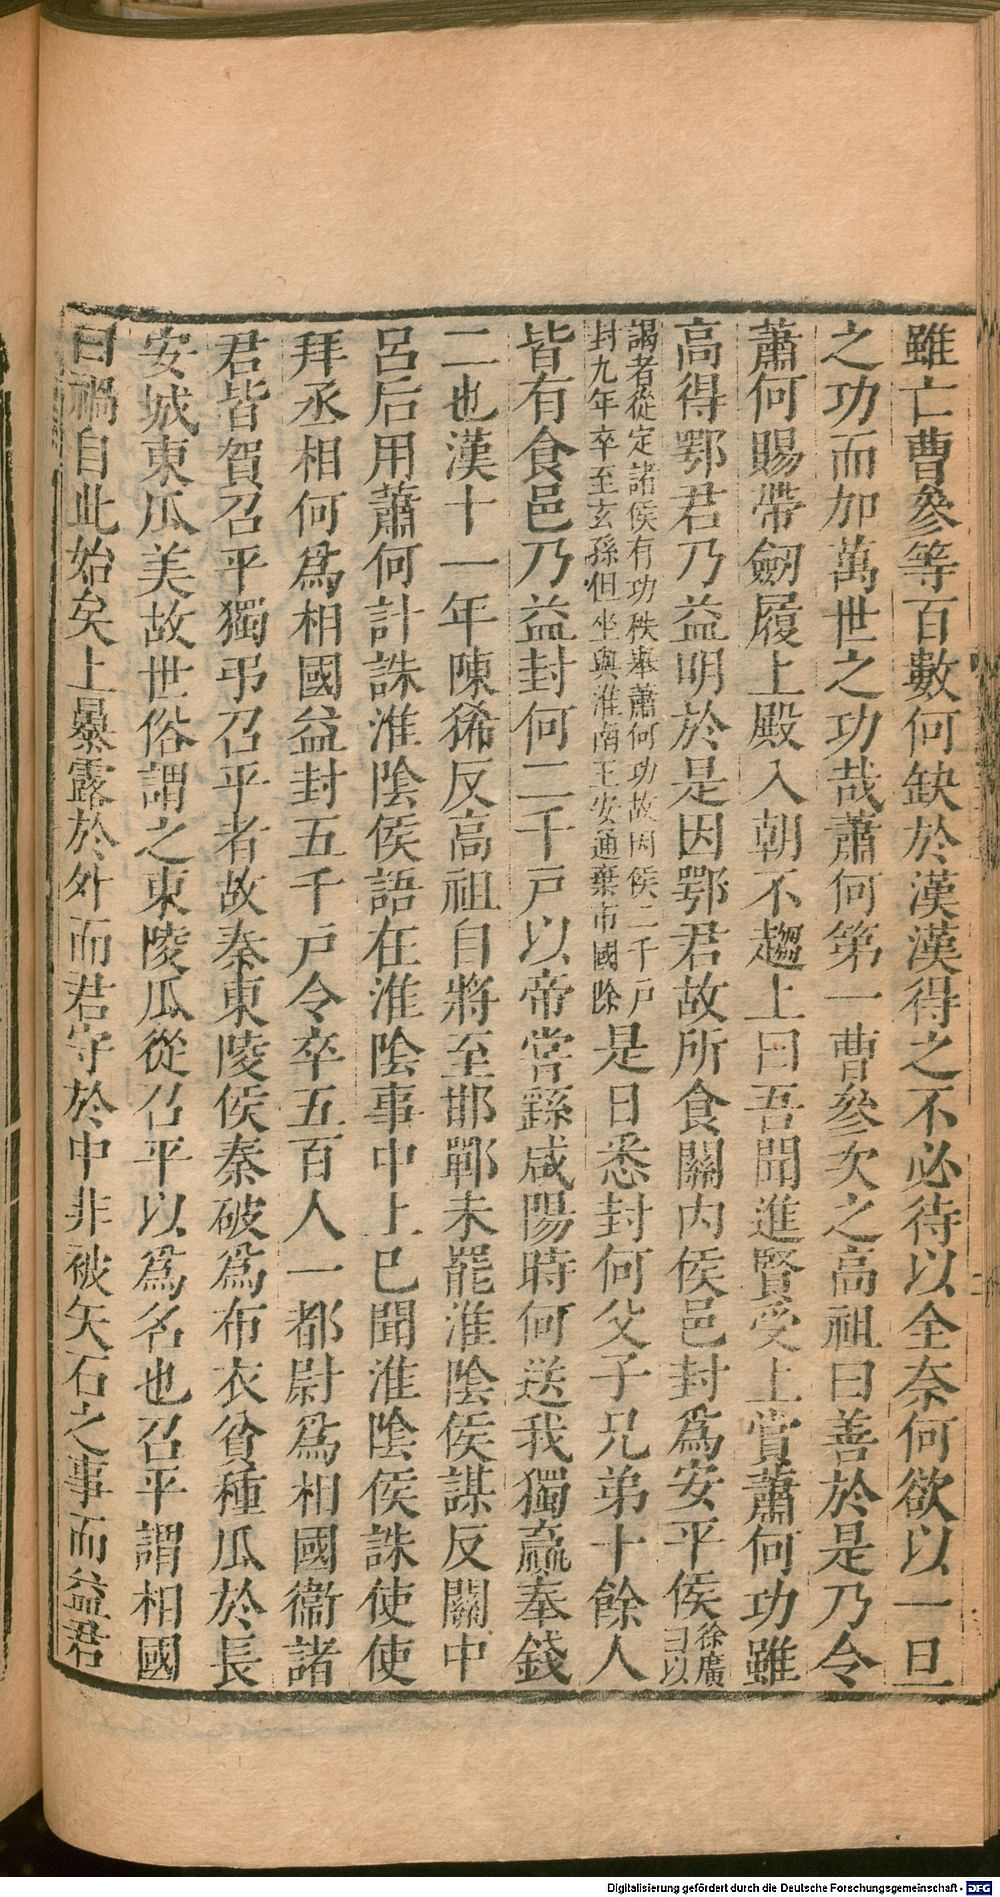 雖亡曹參等百數何缺於漢漢得之不必待以全奈何欲以一旦
之功而加萬世之功哉蕭何第一曹參次之高祖曰善於是乃令
蕭何賜帶劒履上殿入朝不趨上曰吾聞進賢受上賞蕭何功雖
高得鄂君乃益明於是因鄂君故所食關內侯邑封爲安平侯徐廣曰以
謁者從定諸侯有功秩舉蕭何功故因侯二千戸封九年卒至玄孫但坐與淮南王安通棄市國除是日悉封何父子兄弟十餘人
皆有食邑乃益封何二千戸以帝嘗繇咸陽時何送我獨贏奉錢
二也漢十一年陳豨反高祖自將至邯鄲未罷淮陰侯謀反關中
呂后用蕭何計誅淮陰侯語在淮陰事中上已聞淮陰侯誅使使
拜丞相何爲相國益封五千戸令卒五百人一都尉爲相國衞諸
君皆賀召平獨弔召平者故秦東陵侯秦破爲布衣貧種瓜於長
安城東瓜美故世俗謂之東陵瓜從召平以爲名也召平謂相國
曰禍自此始矣上暴露於外而君守於中非被矢石之事而益君
Digitalisierung gefördert durch die Deutsche Forschungsgemeinschaft - DFG